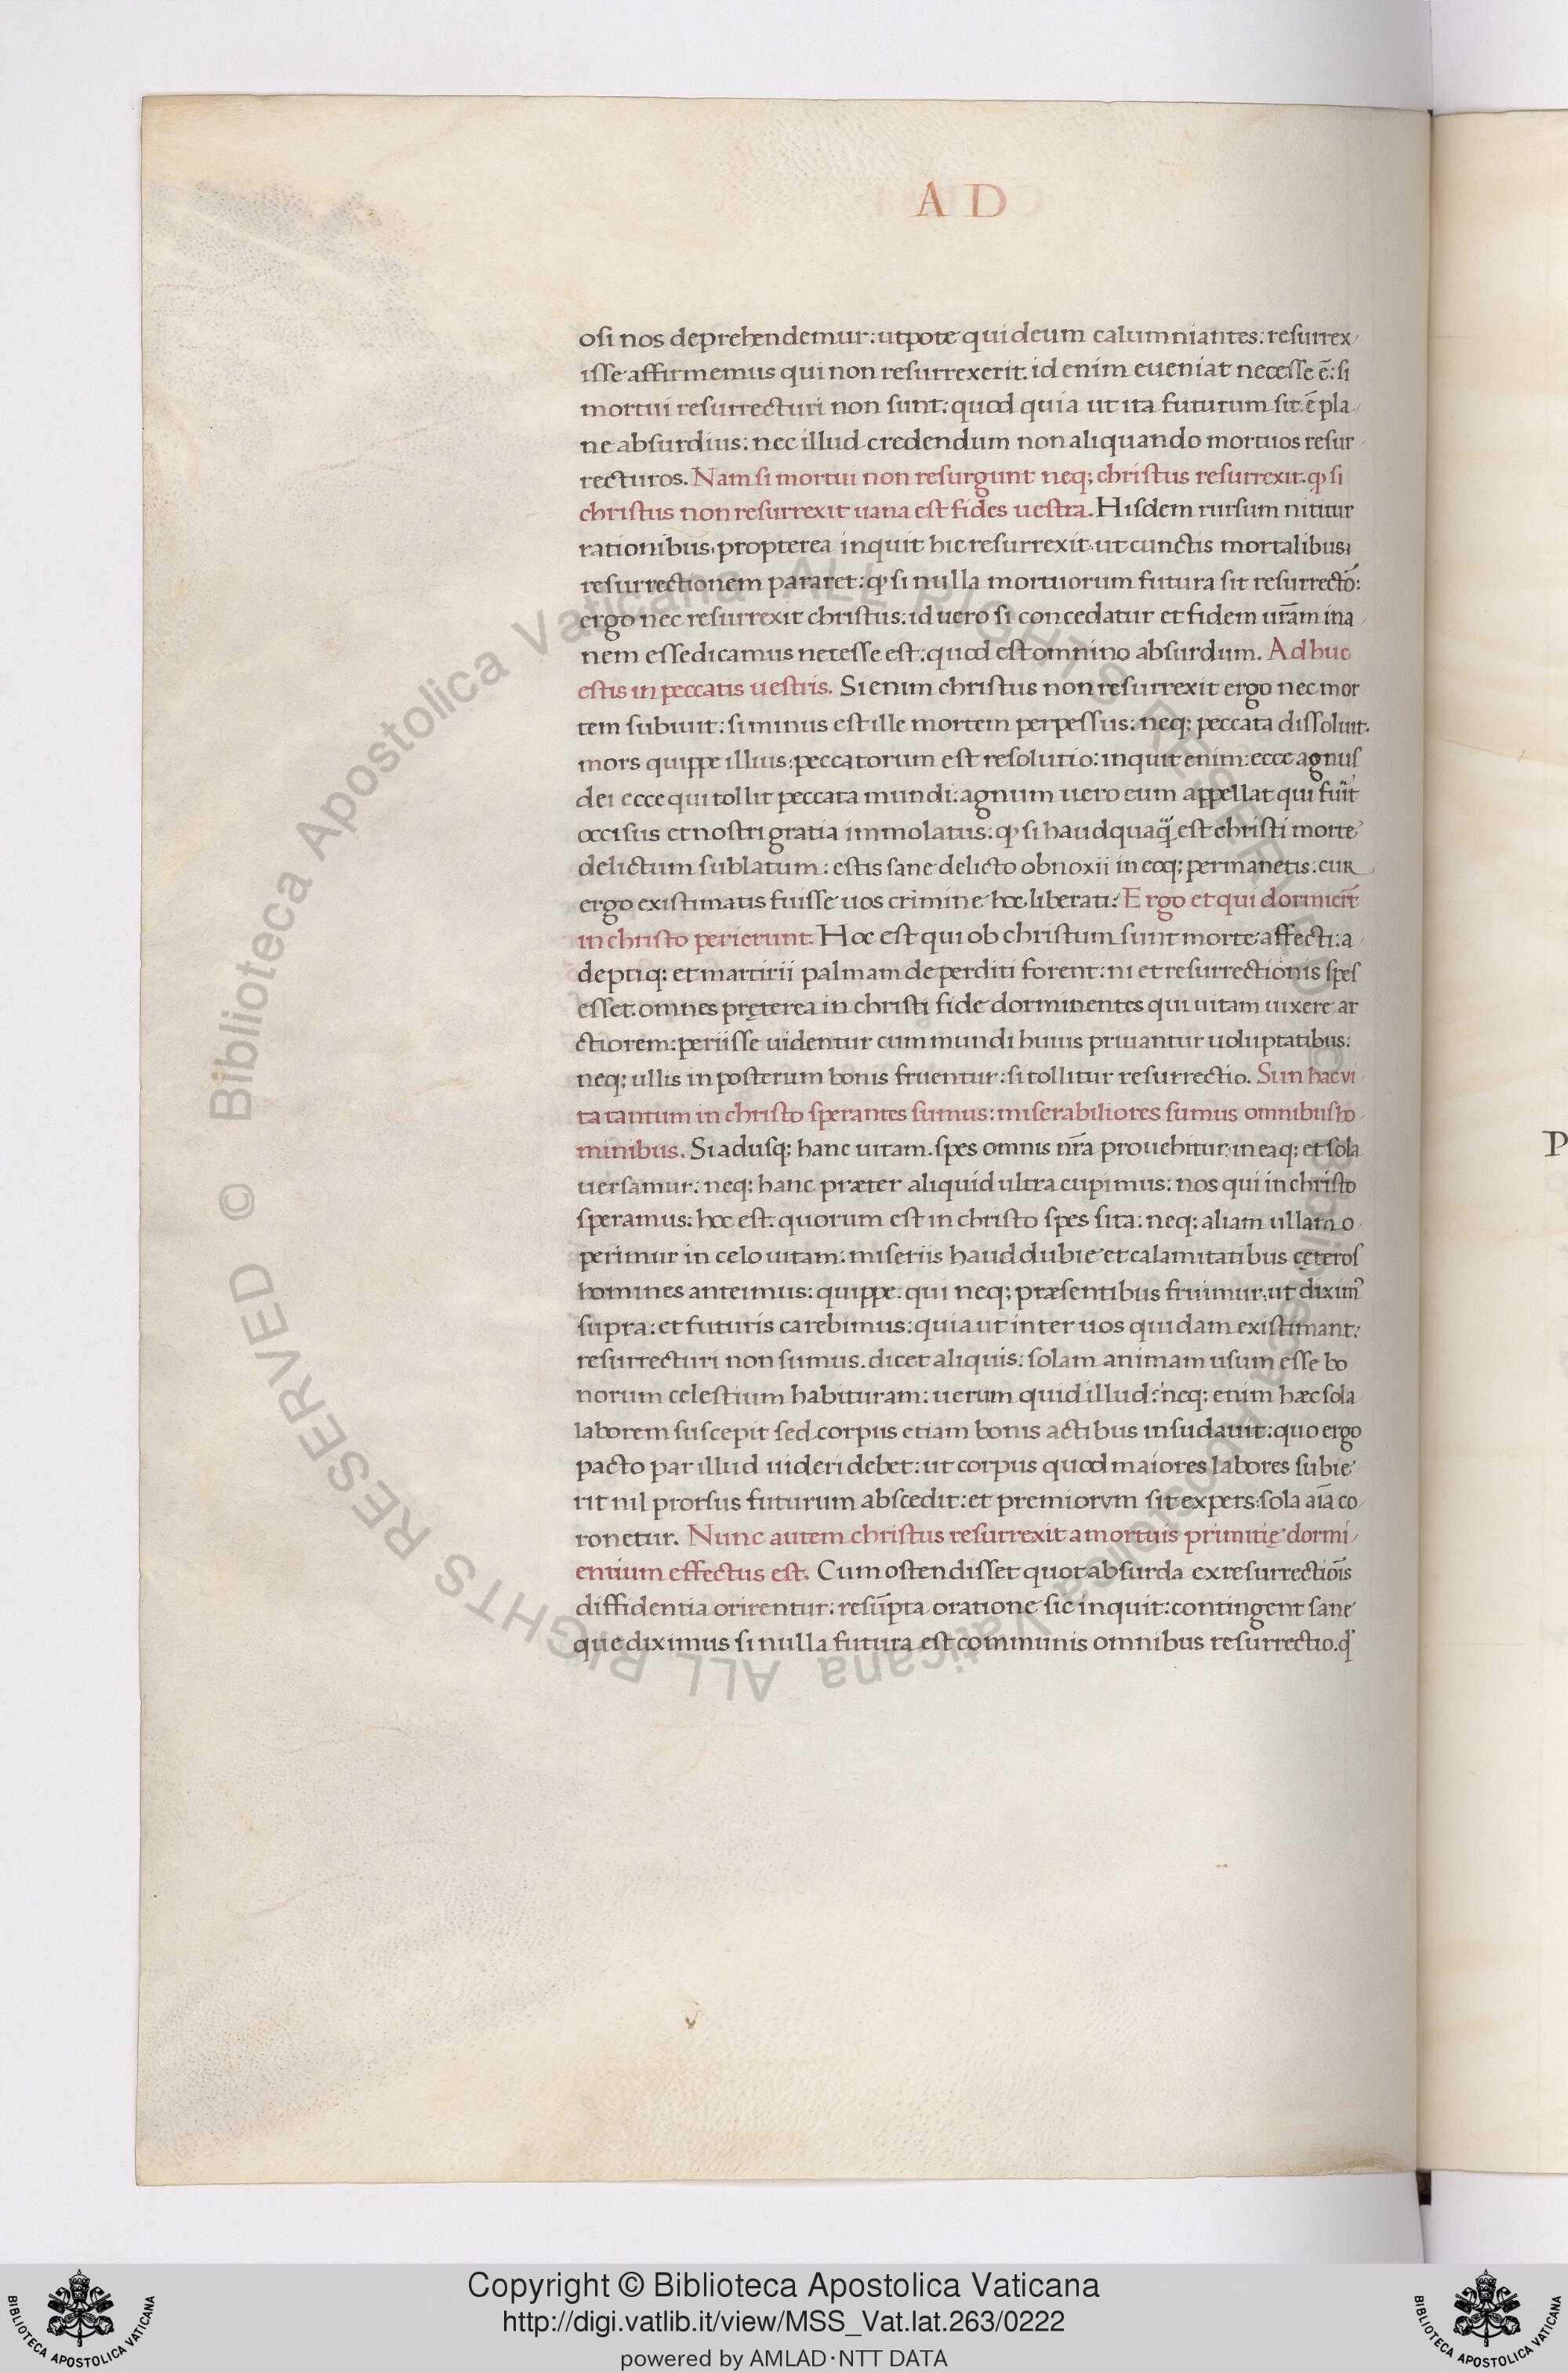 A D
osi nos deprehendemur: utpote qui deum calumniantes: resurrex
isse affirmemus qui non resurrexerit. id enim eueniat necesse ē: si
mortui resurrecturi non sunt: quod quia ut ita futurum sit. ē pla
ne absurdius: nec illud credendum non aliquando mortuos resur
recturos. Nam si mortui non resurgunt neq; christus resurrexit. ꝙ si
christus non resurrexit uana est fides uestra. Hisdem rursum nititur
rationibus. propterea inquit hic resurrexit. ut cunctis mortalibus
resurrectionem pararet: ꝙ si nulla mortuorum futura sit resurrectō:
ergo nec resurrexit christus: id uero si concedatur et fidem ur̄am ina
nem esse dicamus necesse est: quod est omnino absurdum. Adhuc
estis in peccatis uestris. Si enim christus non resurrexit ergo nec mor
tem subiuit: si minus est ille mortem perpessus: neq; peccata dissoluit.
mors quippe illius: peccatorum est resolutio: inquit enim: ecce agnus
dei ecce qui tollit peccata mundi: agnum uero eum appellat qui fuit
occisus et nostri gratia immolatus: ꝙ si haudquaq̃ est christi morte
delictum sublatum: estis sane delicto obnoxii in eoq; permanetis: cur
ergo existimatis fuisse uos crimine hoc liberati? Ergo et qui dormier̄t
in christo perierunt. Hoc est qui ob christum sunt morte affecti: a
deptiq; et martirii palmam deperditi forent: ni et resurrectionis spes
esset. omnes pręterea in christi fide dorminentes qui uitam uixere ar
ctiorem: periisse uidentur cum mundi huius priuantur uoluptatibus:
neq; ullis in posterum bonis fruentur: si tollitur resurrectio. Si in hac vi
ta tantum in christo sperantes sumus: miserabiliores sumus omnibus ho
minibus. Si adusq; hanc uitam. spes omnis nr̄a prouehitur: in eaq; et sola
uersamur: neq; hanc præter aliquid ultra cupimus: nos qui in christo
speramus: hoc est. quorum est in christo spes sita: neq; aliam ullam o
perimur in celo uitam: miseriis haud dubie et calamitatibus cęteros
homines anteimus: quippe. qui neq; præsentibus fruimur. ut diximꝰ
supra: et futuris carebimus: quia ut inter uos quidam existimant:
resurrecturi non sumus. dicet aliquis: solam animam usum esse bo
norum celestium habituram: uerum quid illud? neq; enim hæc sola
laborem suscepit sed corpus etiam bonis actibus insudauit: quo ergo
pacto par illud uideri debet: ut corpus quod maiores labores subie
rit nil prorsus futurum abscedit: et premiorvm sit expers: sola aīa co
ronetur. Nunc autem christus resurrexit a mortuis primitię dormi
entium effectus est. Cum ostendisset quot absurda ex resurrectiōis
diffidentia orirentur: resūpta oratione sic inquit: contingent sane
que diximus si nulla futura est communis omnibus resurrectio. ꝙ
P
© Biblioteca Apostolica Vaticana ALL RIGHTS RESERVED
© Biblioteca Apostolica Vaticana ALL RIGHTS RESERVED
Copyright © Biblioteca Apostolica Vaticana
http://digi.vatlib.it/view/MSS_Vat.lat.263/0222
powered by AMLAD·NTT DATA
BIBLIOTECA APOSTOLICA VATICANA
BIBLIOTECA APOSTOLICA VATICANA